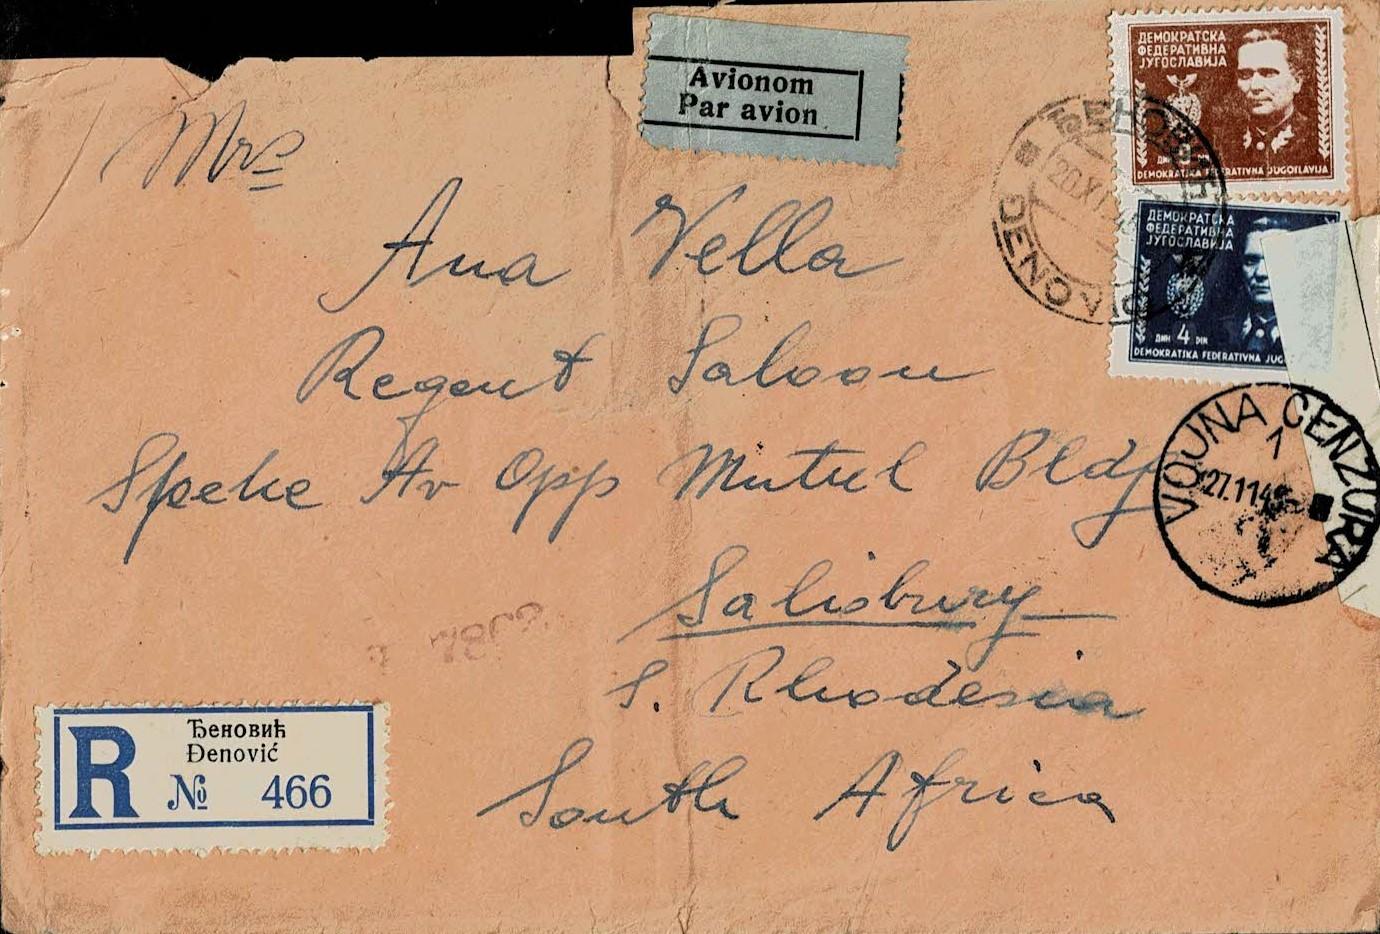 Avionom
Par avion
ДЕМОКРАТСКА
ФЕДЕРАТИВНА
ЈУГОСЛАВИЈА
ДИН
DEMOKRATSKA FEDERATIVNA JUGOSLAVIJA
ДЕМОКРАТСКА
ФЕДЕРАТИВНА
ЈУГОСЛАВИЈА
ДИН 4 DIN
DEMOKRATSKA FEDERATIVNA JUG
ЂЕНОВИЋ
20.XI
ĐENOVIĆ
VOJNA CENZURA
1
27.11.45
Mrs
Ana Vella
Regent Saloon
Speke Av Opp Mutul Bldg
Salisbury
S. Rhodesia
South Africa
R
Ђеновић
Đenović
№ 466